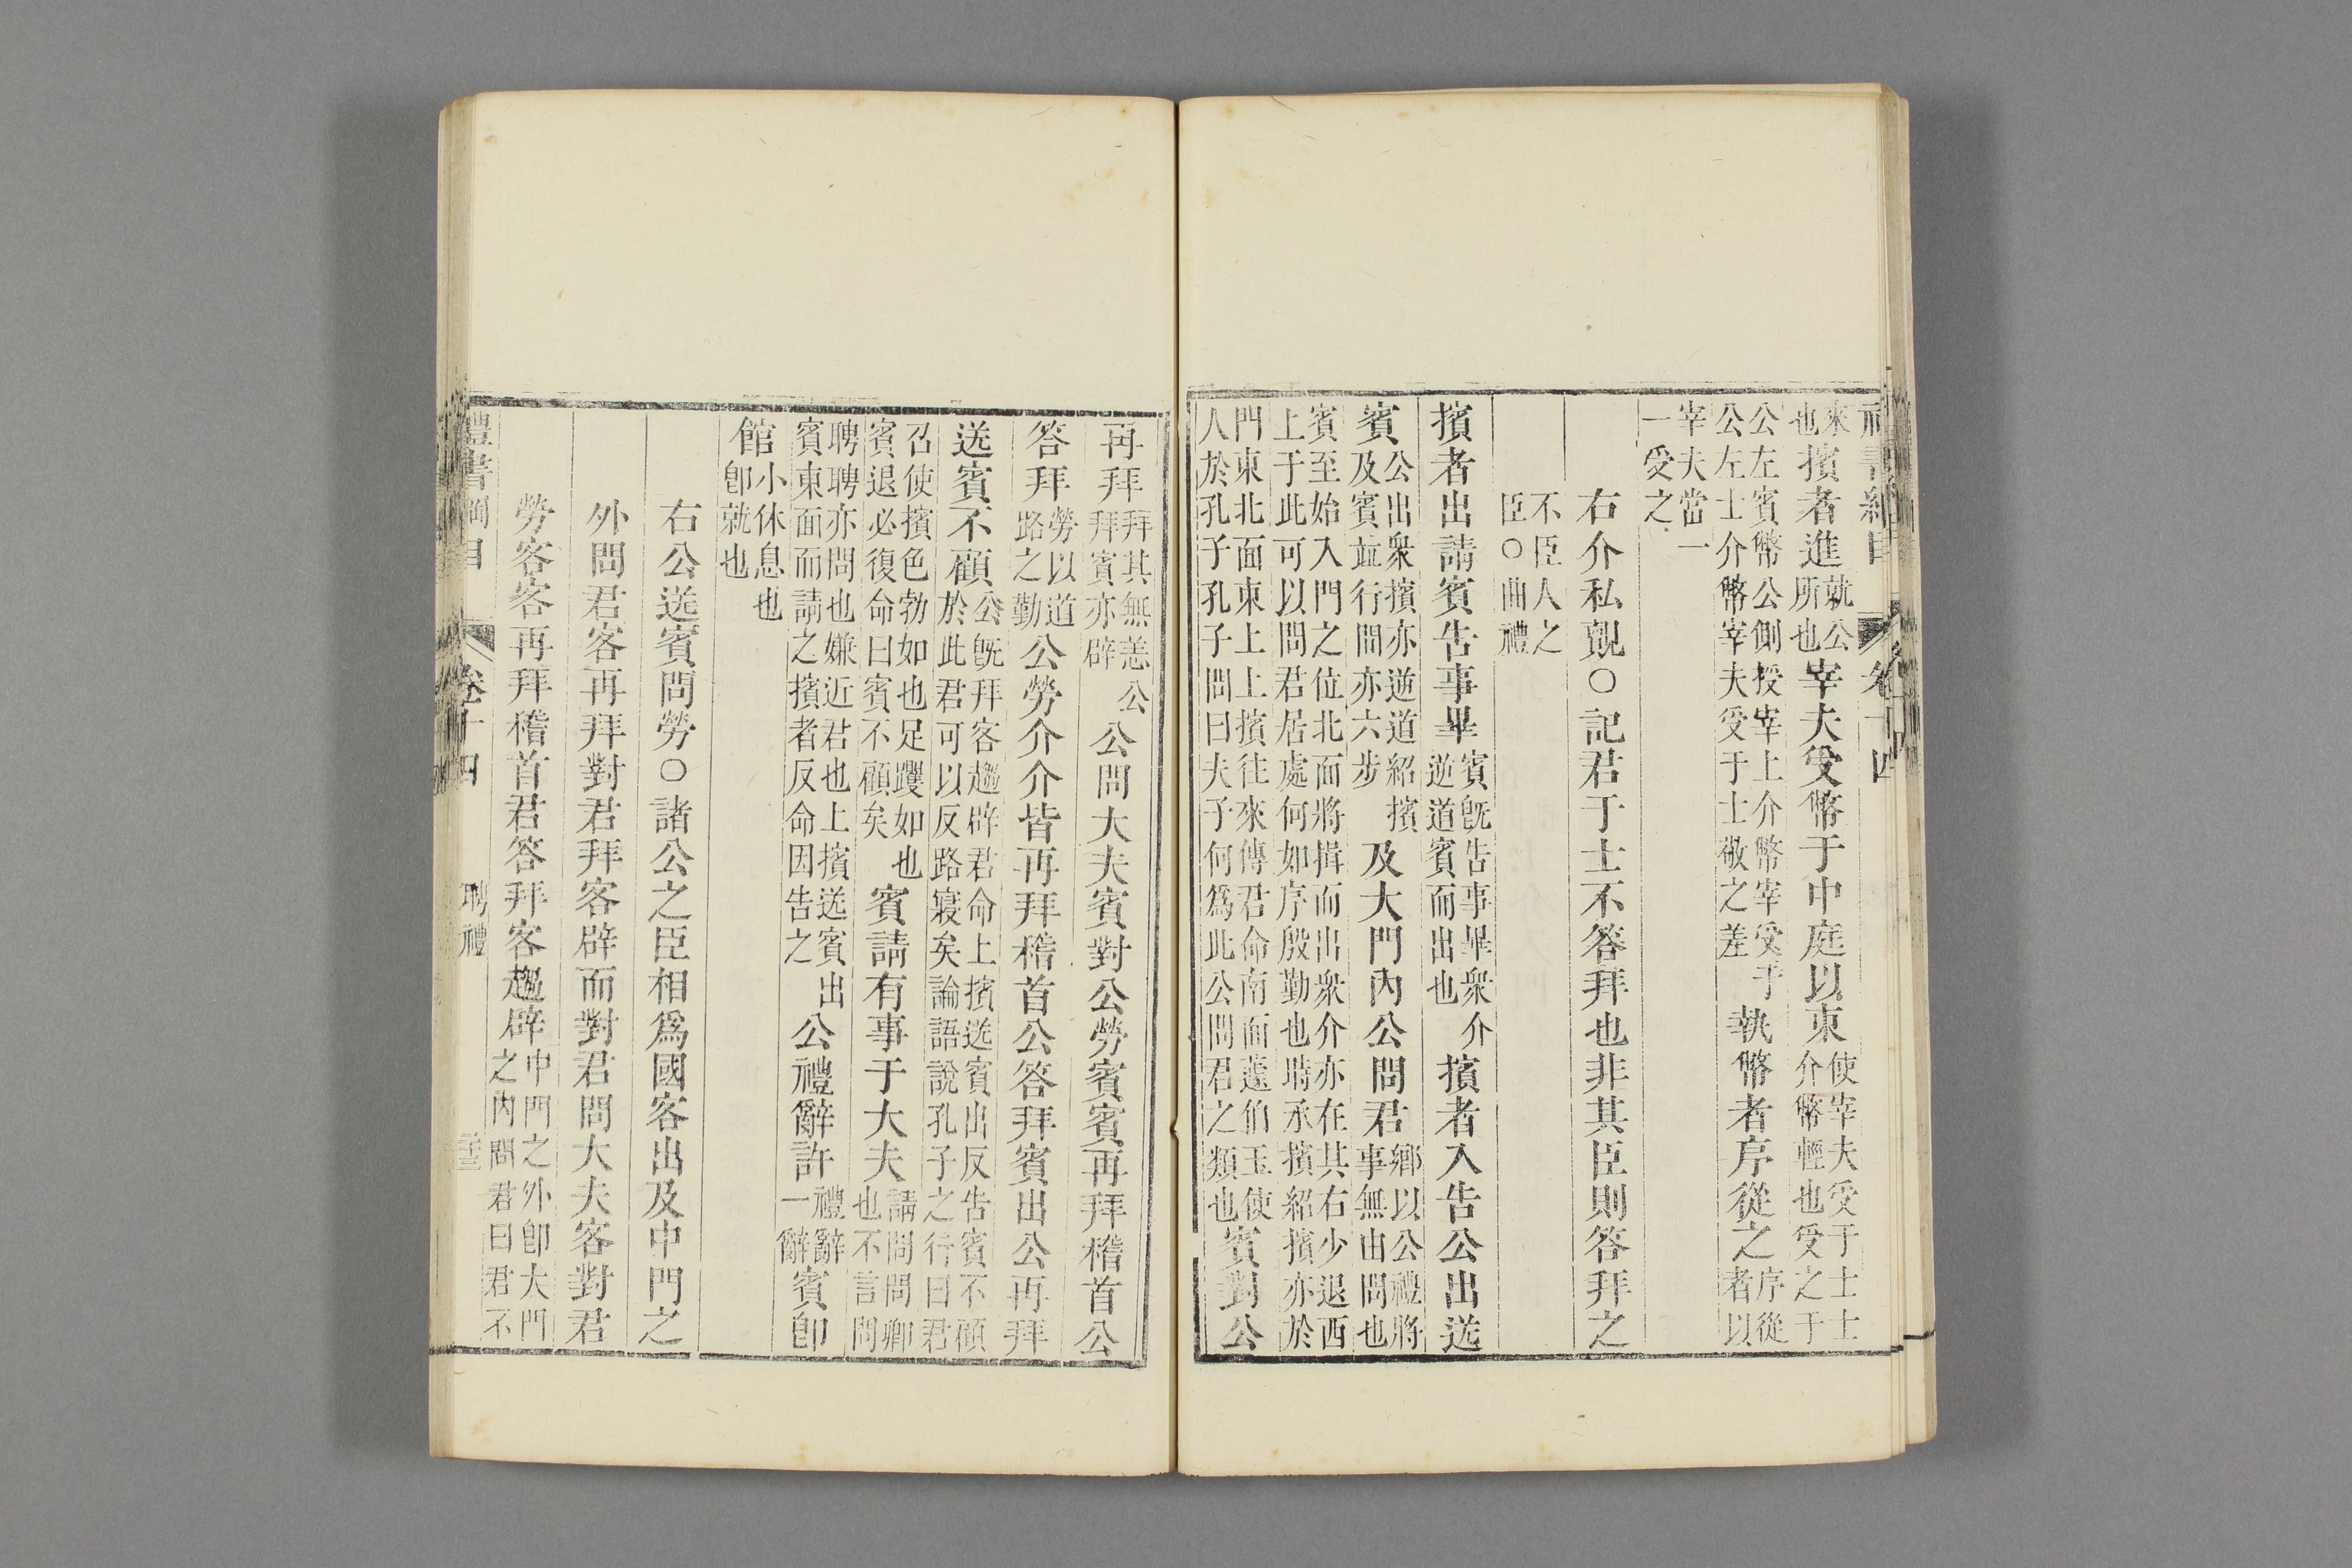 禮書綱目 卷十四
來也擯者進就公所也宰夫受幣于中庭以東使宰夫受于士士介幣輕也受之于
公左賓幣公側授宰上介幣宰受于公左士介幣宰夫受于士敬之差執幣者序從之序從者以
宰夫當一一受之
右介私覿○記君于士不答拜也非其臣則答拜之
不臣人之臣○曲禮
擯者出請賓告事畢賓既告事畢衆介逆道賓而出也擯者入告公出送
賓公出衆擯亦逆道紹擯及賓竝行間亦六步及大門內公問君鄉以公禮將事無由問也
賓至始入門之位北面將揖而出衆介亦在其右少退西上于此可以問君居處何如序殷勤也時承擯紹擯亦於
門東北面東上上擯往來傳君命南面蘧伯玉使人於孔子孔子問曰夫子何爲此公問君之類也賓對公
再拜拜其無恙公拜賓亦辟公問大夫賓對公勞賓賓再拜稽首公
答拜勞以道路之勤公勞介介皆再拜稽首公答拜賓出公再拜
送賓不顧公旣拜客趨辟君命上擯送賓出反告賓不顧於此君可以反路寢矣論語說孔子之行曰君
召使擯色勃如也足躩如也賓退必復命曰賓不顧矣賓請有事于大夫請問問卿也不言問
聘聘亦問也嫌近君也上擯送賓出賓東面而請之擯者反命因告之公禮辭許禮辭一辭賓卽
館小休息也卽就也
右公送賓問勞○諸公之臣相爲國客出及中門之
外問君客再拜對君拜客辟而對君問大夫客對君
勞客客再拜稽首君答拜客趨辟中門之外卽大門之內問君曰君不
禮書綱目 卷十四 聘禮